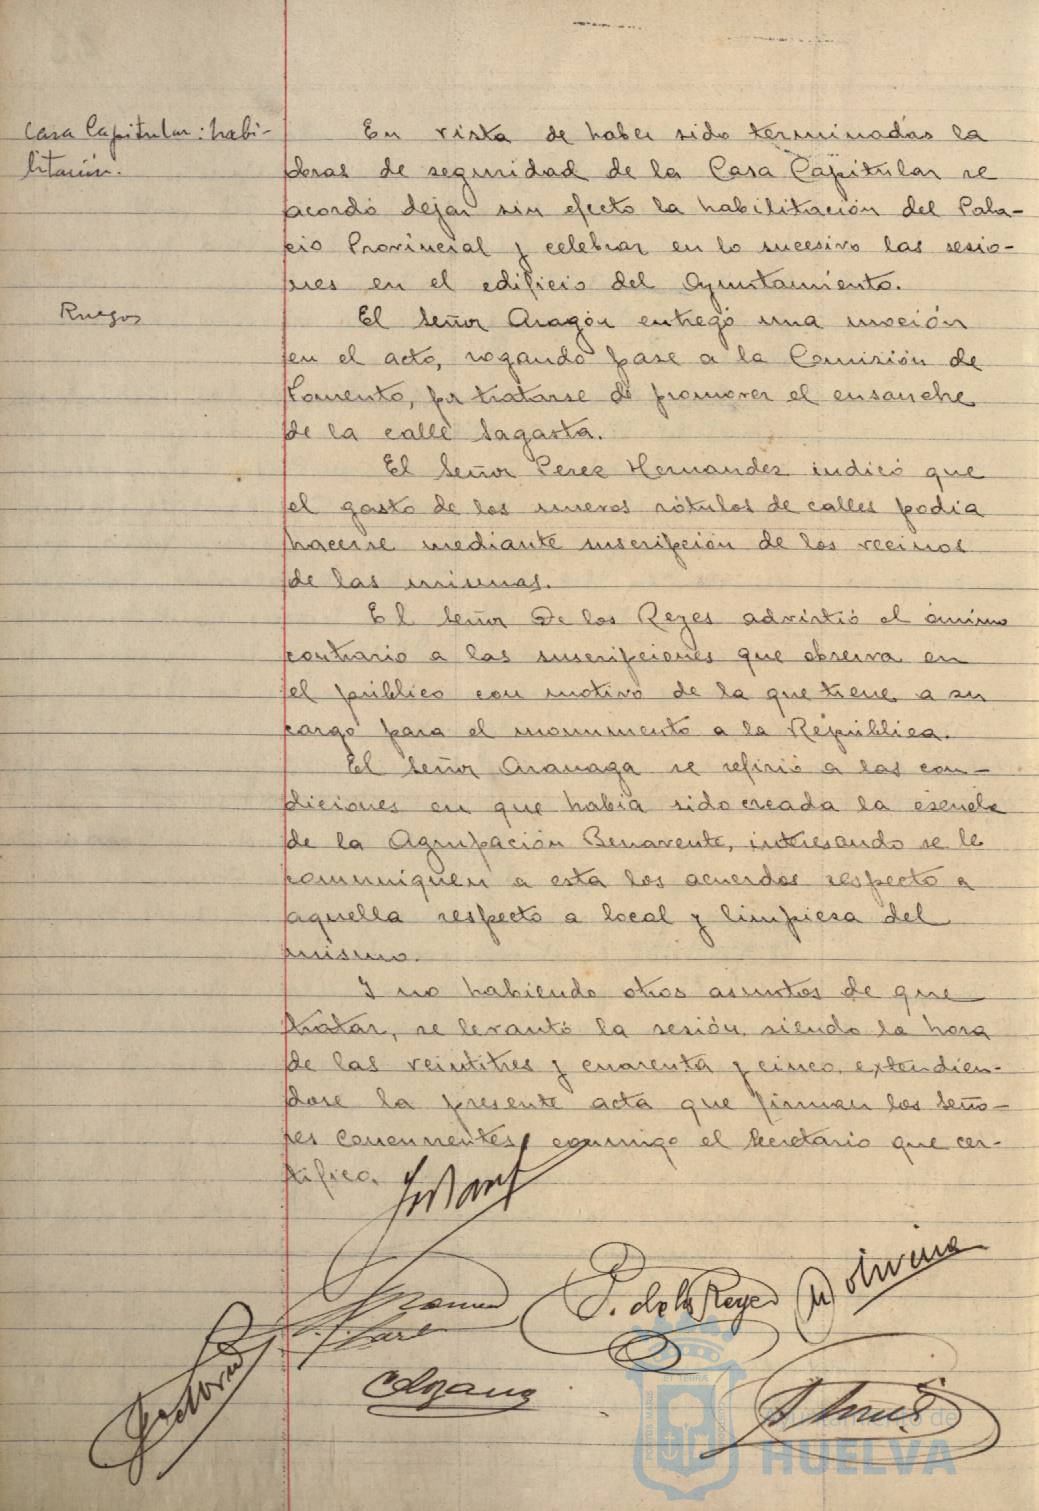 Casa Capitular: habi-
litación.
En vista de haber sido terminadas la
obras de seguridad de la Casa Capitular se
acordó dejar sin efecto la habilitación del Pala-
cio Provincial y celebrar en lo sucesivo las sesio-
nes en el edificio del Ayuntamiento.
Ruegos
El Señor Aragón entregó una moción
en el acto, rogando pase a la Comisión de
Fomento, por tratarse de promover el ensanche
de la calle Sagasta.
El Señor Perez Hernandez indicó que
el gasto de los nuevos rótulos de calles podia
hacerse mediante suscripción de los vecinos
de las mismas.
El Señor De los Reyes advirtió el ánimo
contrario a las suscripciones que observa en
el público con motivo de la que tiene a su
cargo para el monumento a la República.
El Señor Aranaga se refirió a las con-
diciones en que habia sido creada la escuela
de la Agrupación Benavente, interesando se le
comuniquen a esta los acuerdos respecto a
aquella respecto a local y limpieza del
mismo.
Y no habiendo otros asuntos de que
tratar, se levantó la sesión siendo la hora
de las veintitres y cuarenta y cinco, extendien-
dose la presente acta que firman los Seño-
res concurrentes, conmigo el Secretario que cer-
tifico.
P. de los Reyes
Ayuntamiento de
HUELVA